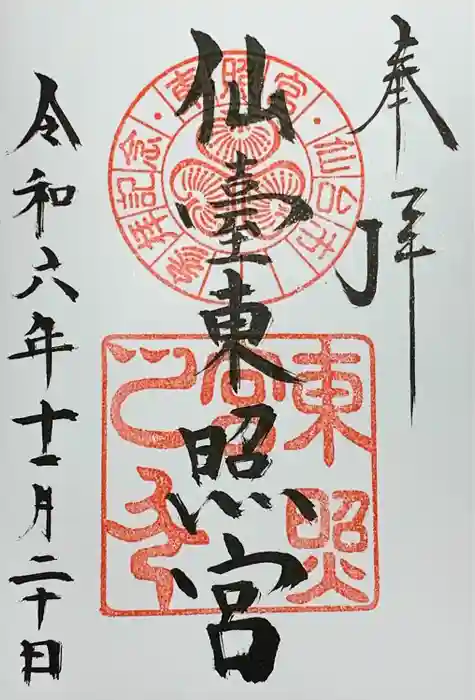 奉拝
仙臺東照宮
令和六年十一月二十日
東照宮
仙台市
参拝記念
東照宮